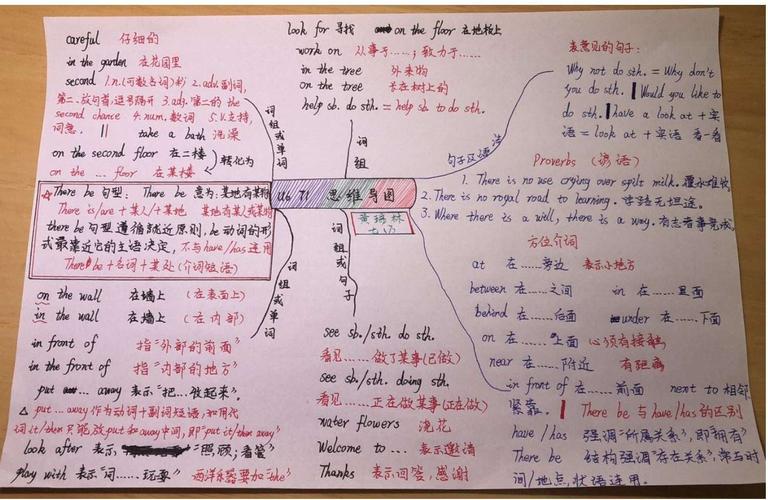 careful 仔细的
in the garden 在花园里
second 1.n.(可数名词)秒 2.adv.副词,
第二.放句首,逗号隔开 3.adj.第二的 the
second chance 4.num.数词 5.v.支持,
take a bath 洗澡
on the second floor 在二楼
转化为
on the ... floor 在某楼
词组或单词
☆There be 句型: There be 意为:某地有某物
There is/are + 某人/+某地 某地有某人或某物
there be 句型遵循就近原则, be动词的形
式最靠近它的主语决定, 不与have/has连用
There be +名词+某处(介词短语)
on the wall 在墙上 (在表面上)
in the wall 在墙上 (在内部)
in front of 指"外部的前面"
in the front of 指"内部的地方"
put ... away 表示"把...收起来".
△ put ... away 作为动词十副词短语,如用代
词it/them只能放put和away中间,即"put it/them away"
look after 表示, "照顾;看管"
play with 表示"同......玩耍" 西洋乐器要加"the"
词组或单词
look for 寻找 on the floor 在地板上
work on 从事于......; 致力于......
in the tree 外来物
on the tree 长在树上的
help sb. do sth. = help sb to do sth.
词组
U6 T1 思维导图
词组或句子
see sb./sth. do sth.
看见......做了某事(已做)
see sb./sth. doing sth.
看见......正在做某事(正在做)
water flowers 浇花
Welcome to ... 表示邀请
Thanks 表示回答,感谢
表意见的句子:
Why not do sth. = Why don't
you do sth. Would you like to
do sth. have a look at + 宾
语 = look at + 宾语 看一看
Proverbs (谚语)
1. There is no use crying over spilt milk. 覆水难收.
2. There is no royal road to learning. 学路无坦途.
3. Where there is a will, there is a way. 有志者事竟成.
方位介词
at 在......旁边 表示小地方
between 在......之间 in 在......里面
behind 在......后面 under 在......下面
on 在......上面 必须有接触
near 在......附近 有距离
in front of 在......前面 next to 相邻
紧靠. There be 与have/has的区别
have/has 强调"所属关系",即"拥有"
There be 结构强调"存在关系",常与时
间/地点,状语连用.